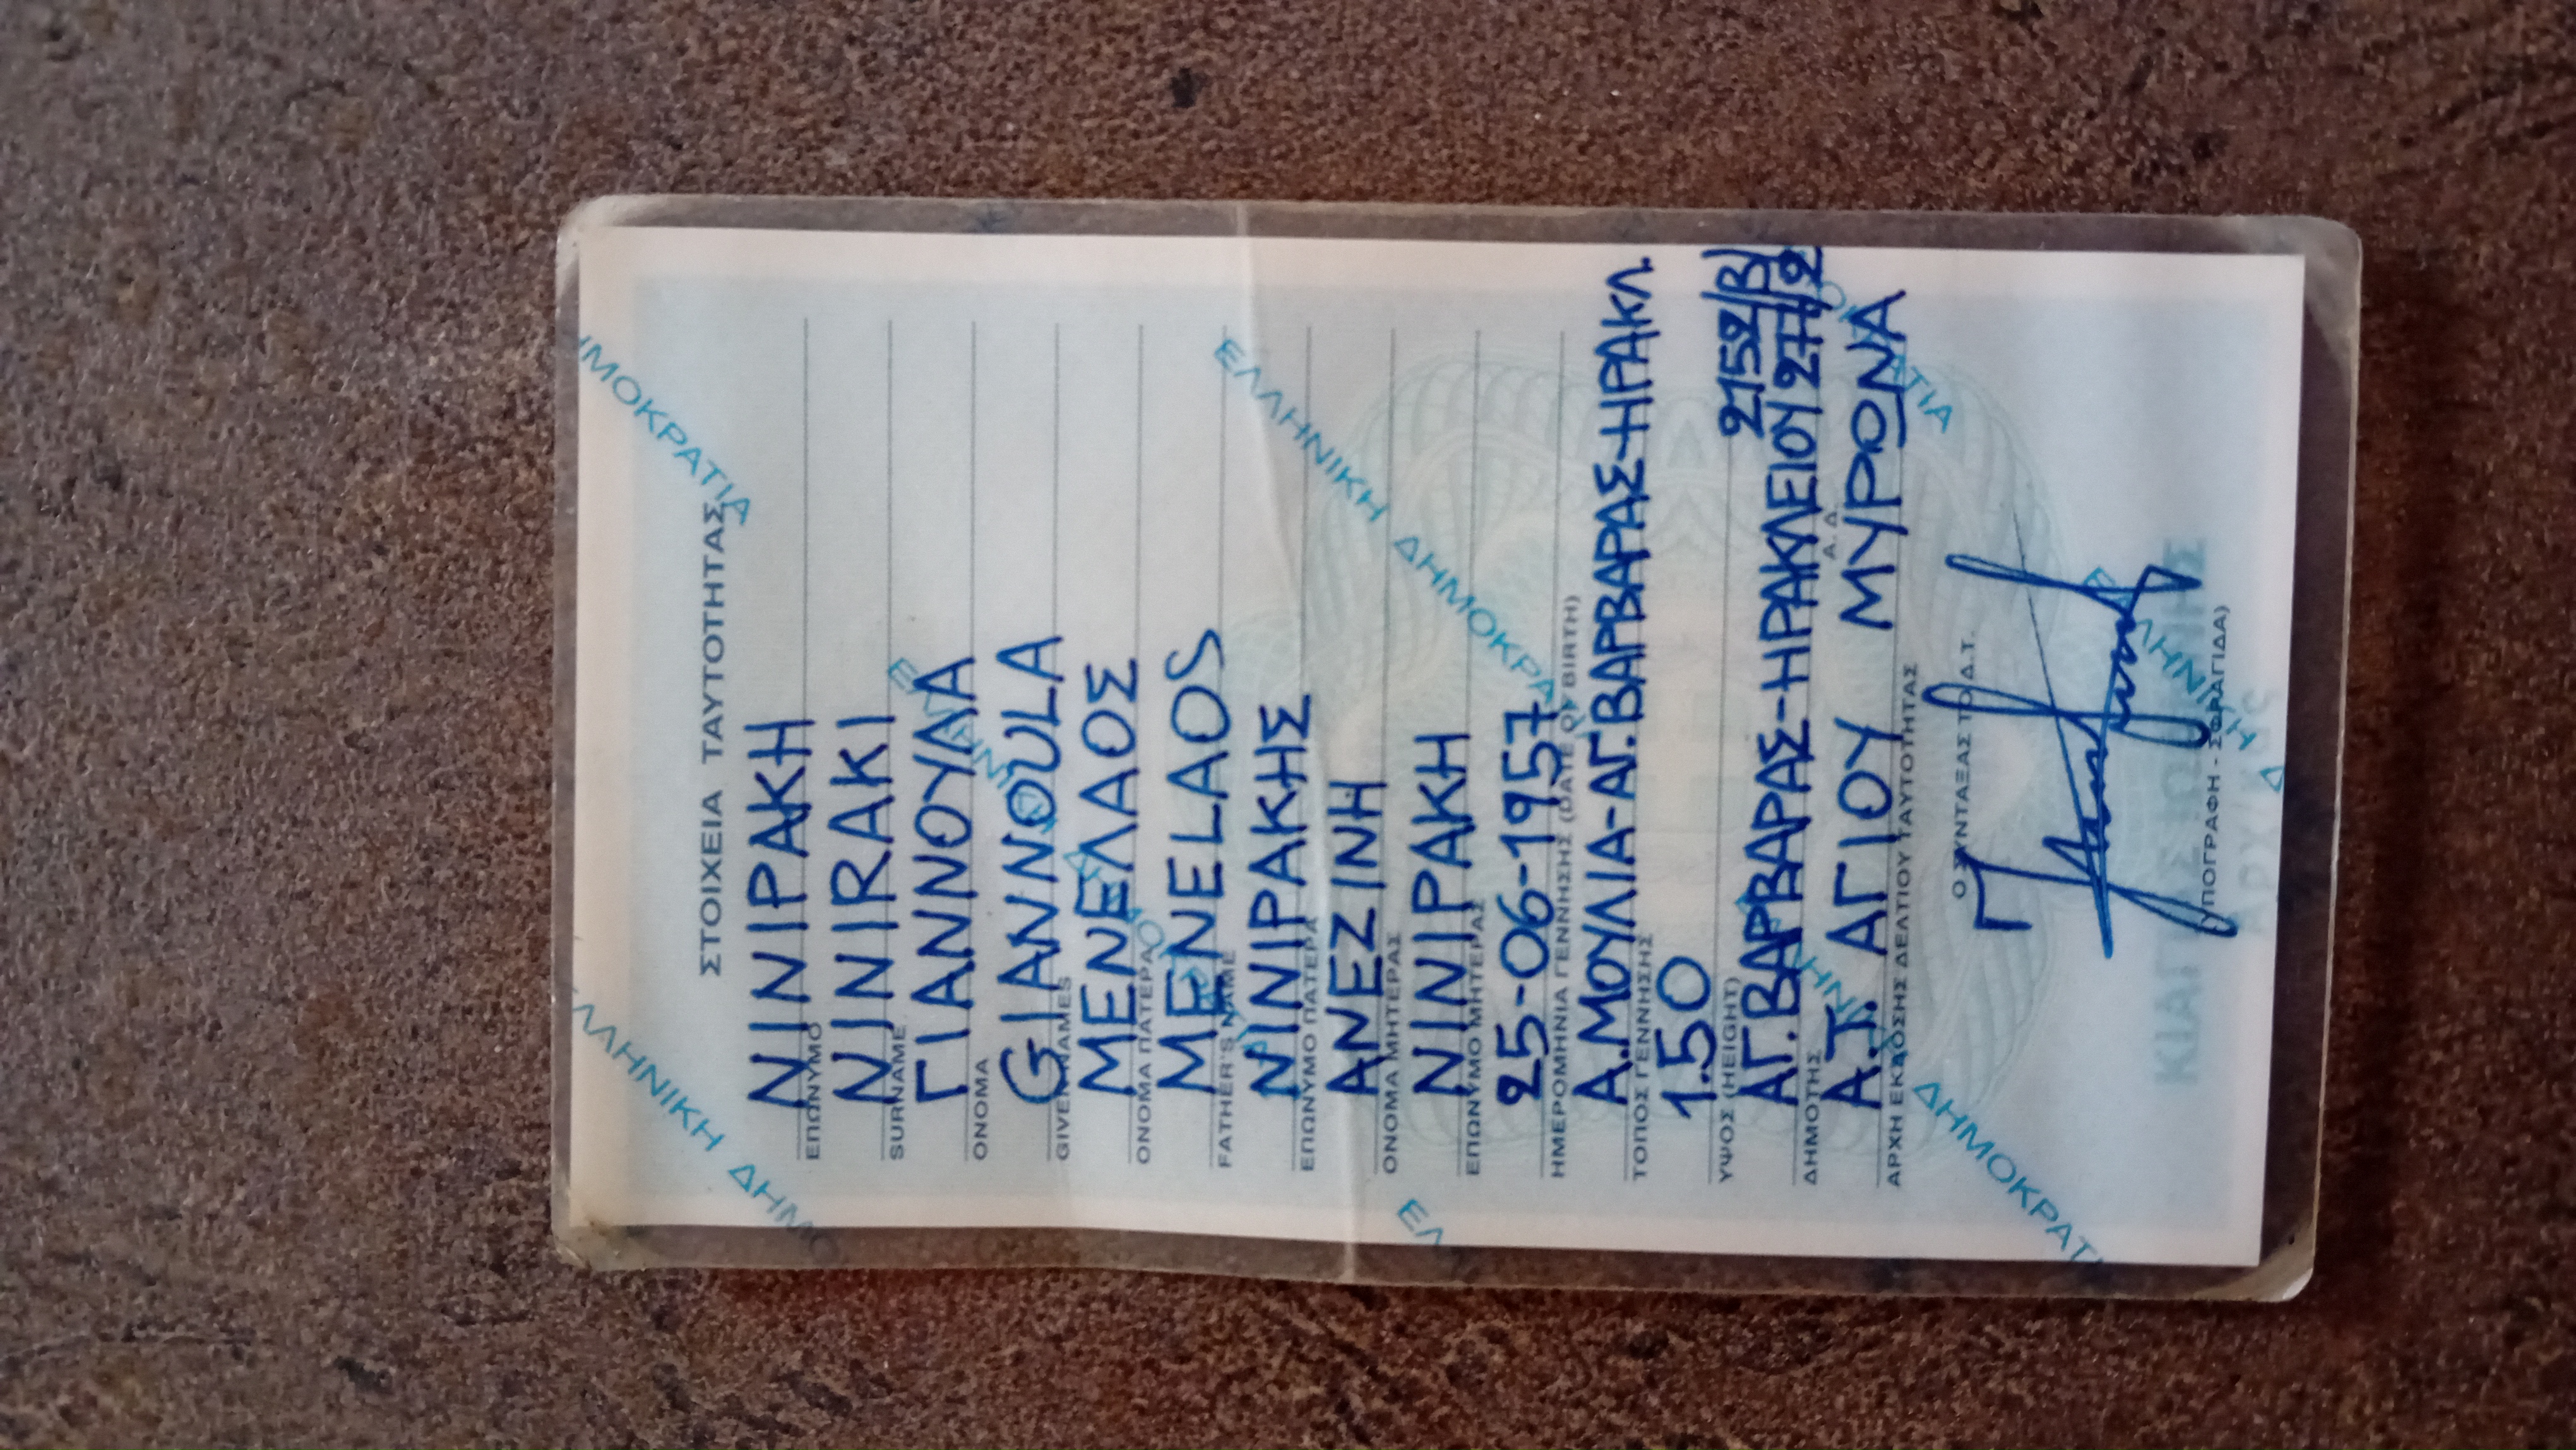 ΣΤΟΙΧΕΙΑ ΤΑΥΤΟΤΗΤΑΣ
ΝΙΝΙΡΑΚΗ
ΕΠΩΝΥΜΟ
NINIRAKI
SURNAME
ΓΙΑΝΝΟΥΛΑ
ΟΝΟΜΑ
GIANNOULA
GIVEN NAMES
ΜΕΝΕΛΑΟΣ
ΟΝΟΜΑ ΠΑΤΕΡΑ
MENELAOS
FATHER'S NAME
ΝΙΝΙΡΑΚΗΣ
ΕΠΩΝΥΜΟ ΠΑΤΕΡΑ
ΑΝΕΖΙΝΗ
ΟΝΟΜΑ ΜΗΤΕΡΑΣ
ΝΙΝΙΡΑΚΗ
ΕΠΩΝΥΜΟ ΜΗΤΕΡΑΣ
25-06-1957
ΗΜΕΡΟΜΗΝΙΑ ΓΕΝΝΗΣΗΣ (DATE OF BIRTH)
Α.ΜΟΥΛΙΑ-ΑΓ.ΒΑΡΒΑΡΑΣ-ΗΡΑΚΛ.
ΤΟΠΟΣ ΓΕΝΝΗΣΗΣ
1.50
ΥΨΟΣ (HEIGHT)
2152/Β/
ΑΓ.ΒΑΡΒΑΡΑΣ-ΗΡΑΚΛΕΙΟΥ
ΔΗΜΟΤΗΣ Α. Δ.
Α.Τ. ΑΓΙΟΥ ΜΥΡΩΝΑ
ΑΡΧΗ ΕΚΔΟΣΗΣ ΔΕΛΤΙΟΥ ΤΑΥΤΟΤΗΤΑΣ
Ο ΣΥΝΤΑΞΑΣ ΤΟ Δ.Τ.
ΥΠΟΓΡΑΦΗ - ΣΦΡΑΓΙΔΑ)
ΕΛΛΗΝΙΚΗ ΔΗΜΟΚΡΑΤΙΑ